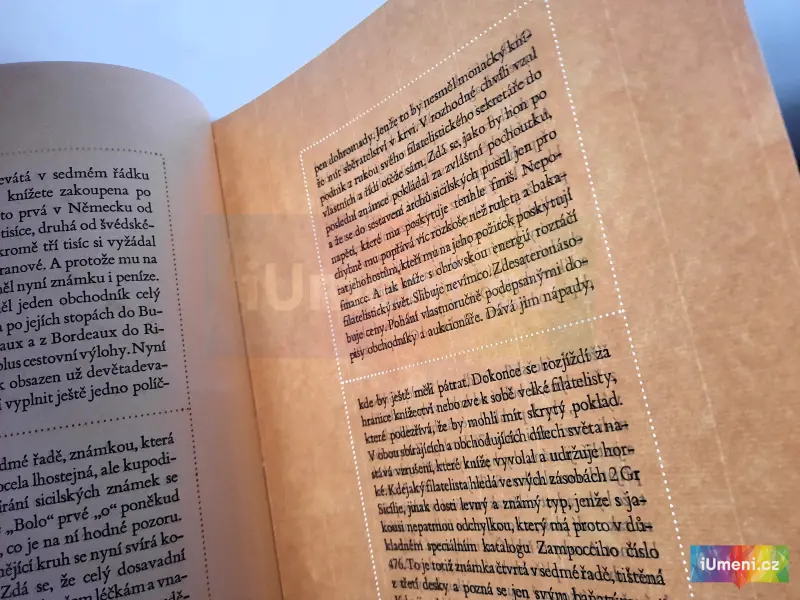 evátá v sedmém řádku
knížete zakoupena po
to prvá v Německu od
tisíce, druhá od švédské-
kromě tří tisíc si vyžádal
ranové. A protože mu na
něl nyní známku i peníze.
ěl jeden obchodník celý
a po jejích stopách do Bu-
aux a z Bordeaux do Ri-
plus cestovní výlohy. Nyní
k obsazen už devětadeva-
vyplnit ještě jedno políč-
dmé řadě, známkou, která
ocela lhostejná, ale kupodi-
írání sicilských známek se
„Bolo“ prvé „o“ poněkud
, co je na ní hodné pozoru.
nější kruh se nyní svírá ko-
Zdá se, že celý dosavadní
léčkám a vna-
pen dohromady. Jenže to by nesměl monacký kní-
že mít sběratelství v krvi. V rozhodné chvíli vzal
podnik z rukou svého filatelistického sekretáře do
vlastních a řídí otěže sám. Zdá se, jako by hon po
poslední známce pokládal za zvláštní pochoutku,
a že se do sestavení archů sicilských pustil jen pro
napětí, které mu poskytuje tenhle finiš. Nepo-
chybně mu popřává víc rozkoše než ruleta a baka-
rat jeho hostím, kteří mu na jeho požitek poskytují
finance. A tak kníže s obrovskou energií roztáčí
filatelistický svět. Slibuje nevímco. Zdesateronáso-
buje ceny. Pohání vlastnoručně podepsanými do-
pisy obchodníky a aukcionáře. Dává jim nápady,
kde by ještě měli pátrat. Dokonce se rozjíždí za
hranice knížectví nebo zve k sobě velké filatelisty,
které podezřívá, že by mohli mít skrytý poklad.
V obou sbírajících a obchodujících dílech světa na-
stává vzrušení, které kníže vyvolal a udržuje hor-
ké. Kdejaký filatelista hledá ve svých zásobách 2 Gr
Sicílie, jinak dosti levný a známý typ, jenže s ja-
kousi nepatrnou odchylkou, který má proto v dů-
kladném speciálním katalogu Zampocciho číslo
476. To je totiž známka čtvrtá v sedmé řadě, tištěná
z třetí desky a pozná se jen svým
iUmeni.cz